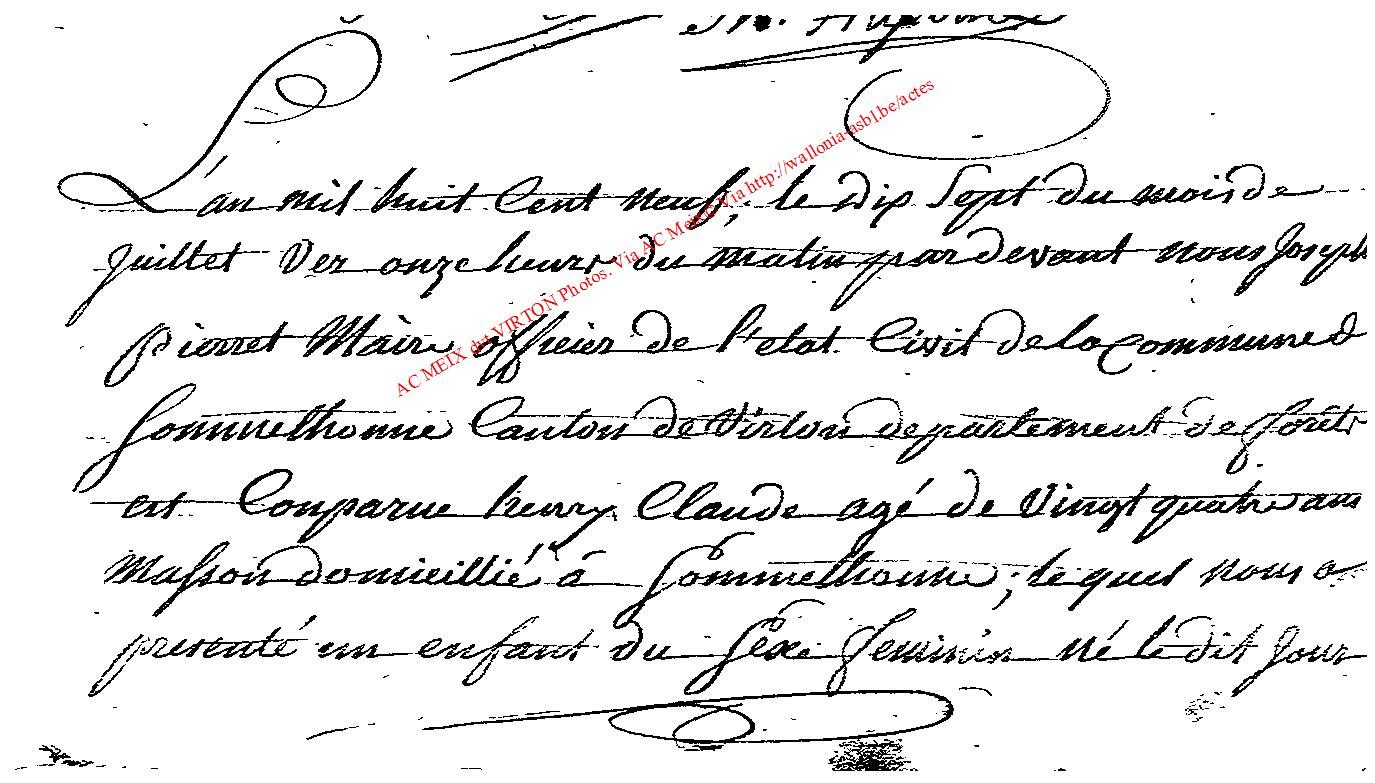 L'an mil huit Cent neuf, le dix Sept du mois de
juillet Ver onze heure du matin par devant nous Joseph
pierret Maire officier de l'etat Civil de la commune d
Sommethonne Canton de Virton departement de forêts
est Comparue henry Claude agé de Vingt quatre ans
Masson domicillié à Sommethonne; le quel nous a
presenté un enfant du Séxe feminin né le dit Jour
AC MEIX dvt VIRTON Photos. Via AC Meix. Via http://wallonia-asbl.be/actes